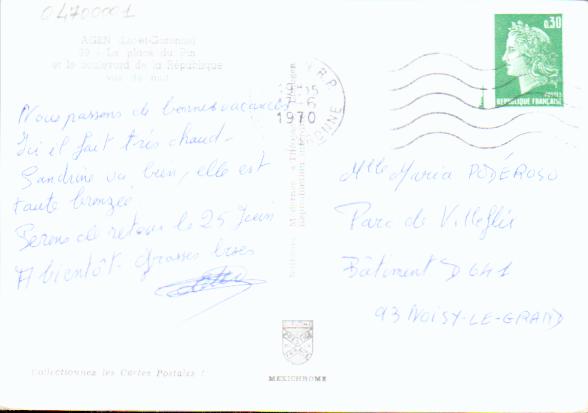 04700001
AGEN (Lot-et-Garonne)
39 - La place du Pin
et le boulevard de la République
vue de nuit
Nous passons de bonnes vacances
Ici il fait très chaud -
Sandrine va bien, elle est
toute bronzée
Serons de retour le 25 Juin
A bientôt - Grosses bises
R.P.
19-15
7-6
1970
GARONNE
0,30
POSTES
REPUBLIQUE FRANÇAISE
Mlle Maria PODÉROSO
Parc de Villeflix
Bâtiment D 641
93 NOISY-LE-GRAND
Collectionnez les Cartes Postales !
MEXICHROME